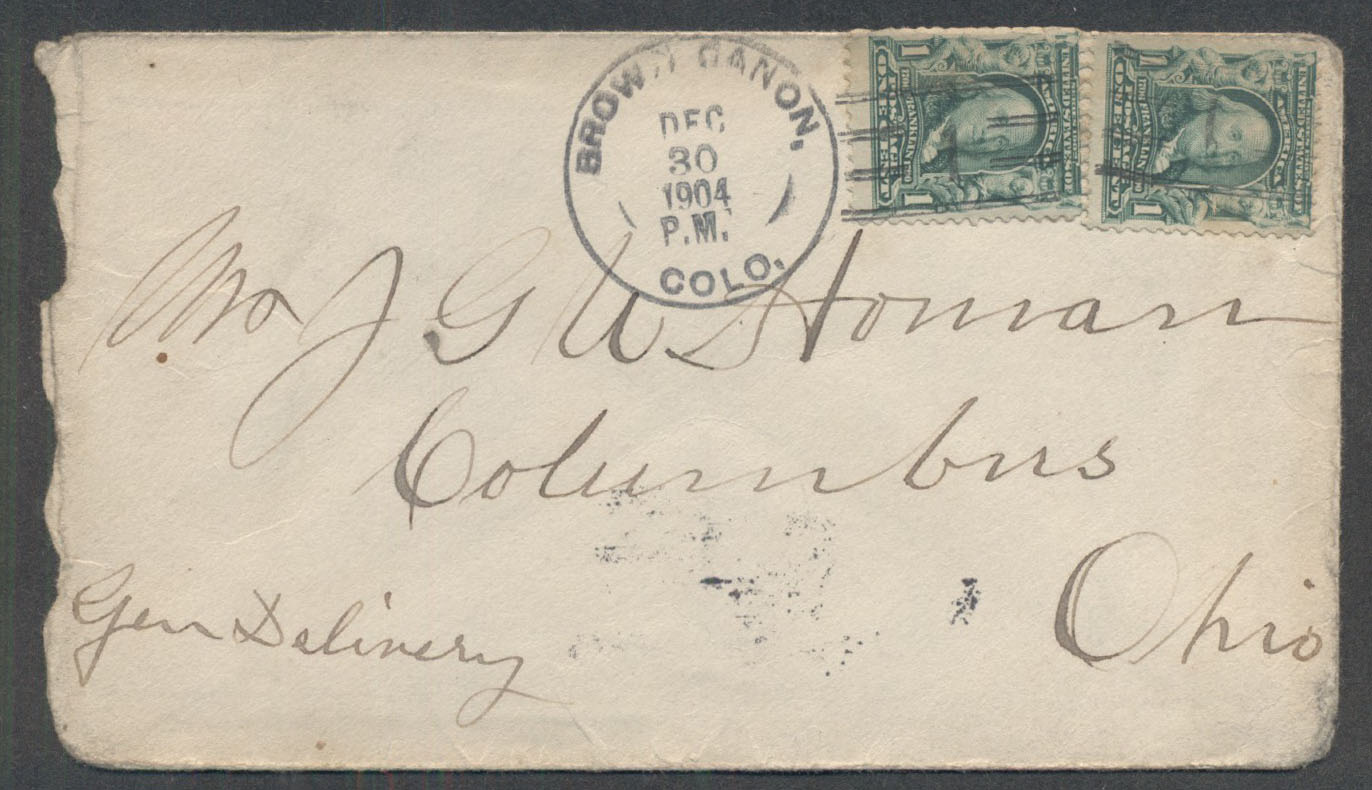 BROWN CANON,
DEC
30
1904
P.M.
COLO.
1
1
1
1
Mr J G W Homan
Columbus
Ohio
Gen Delivery